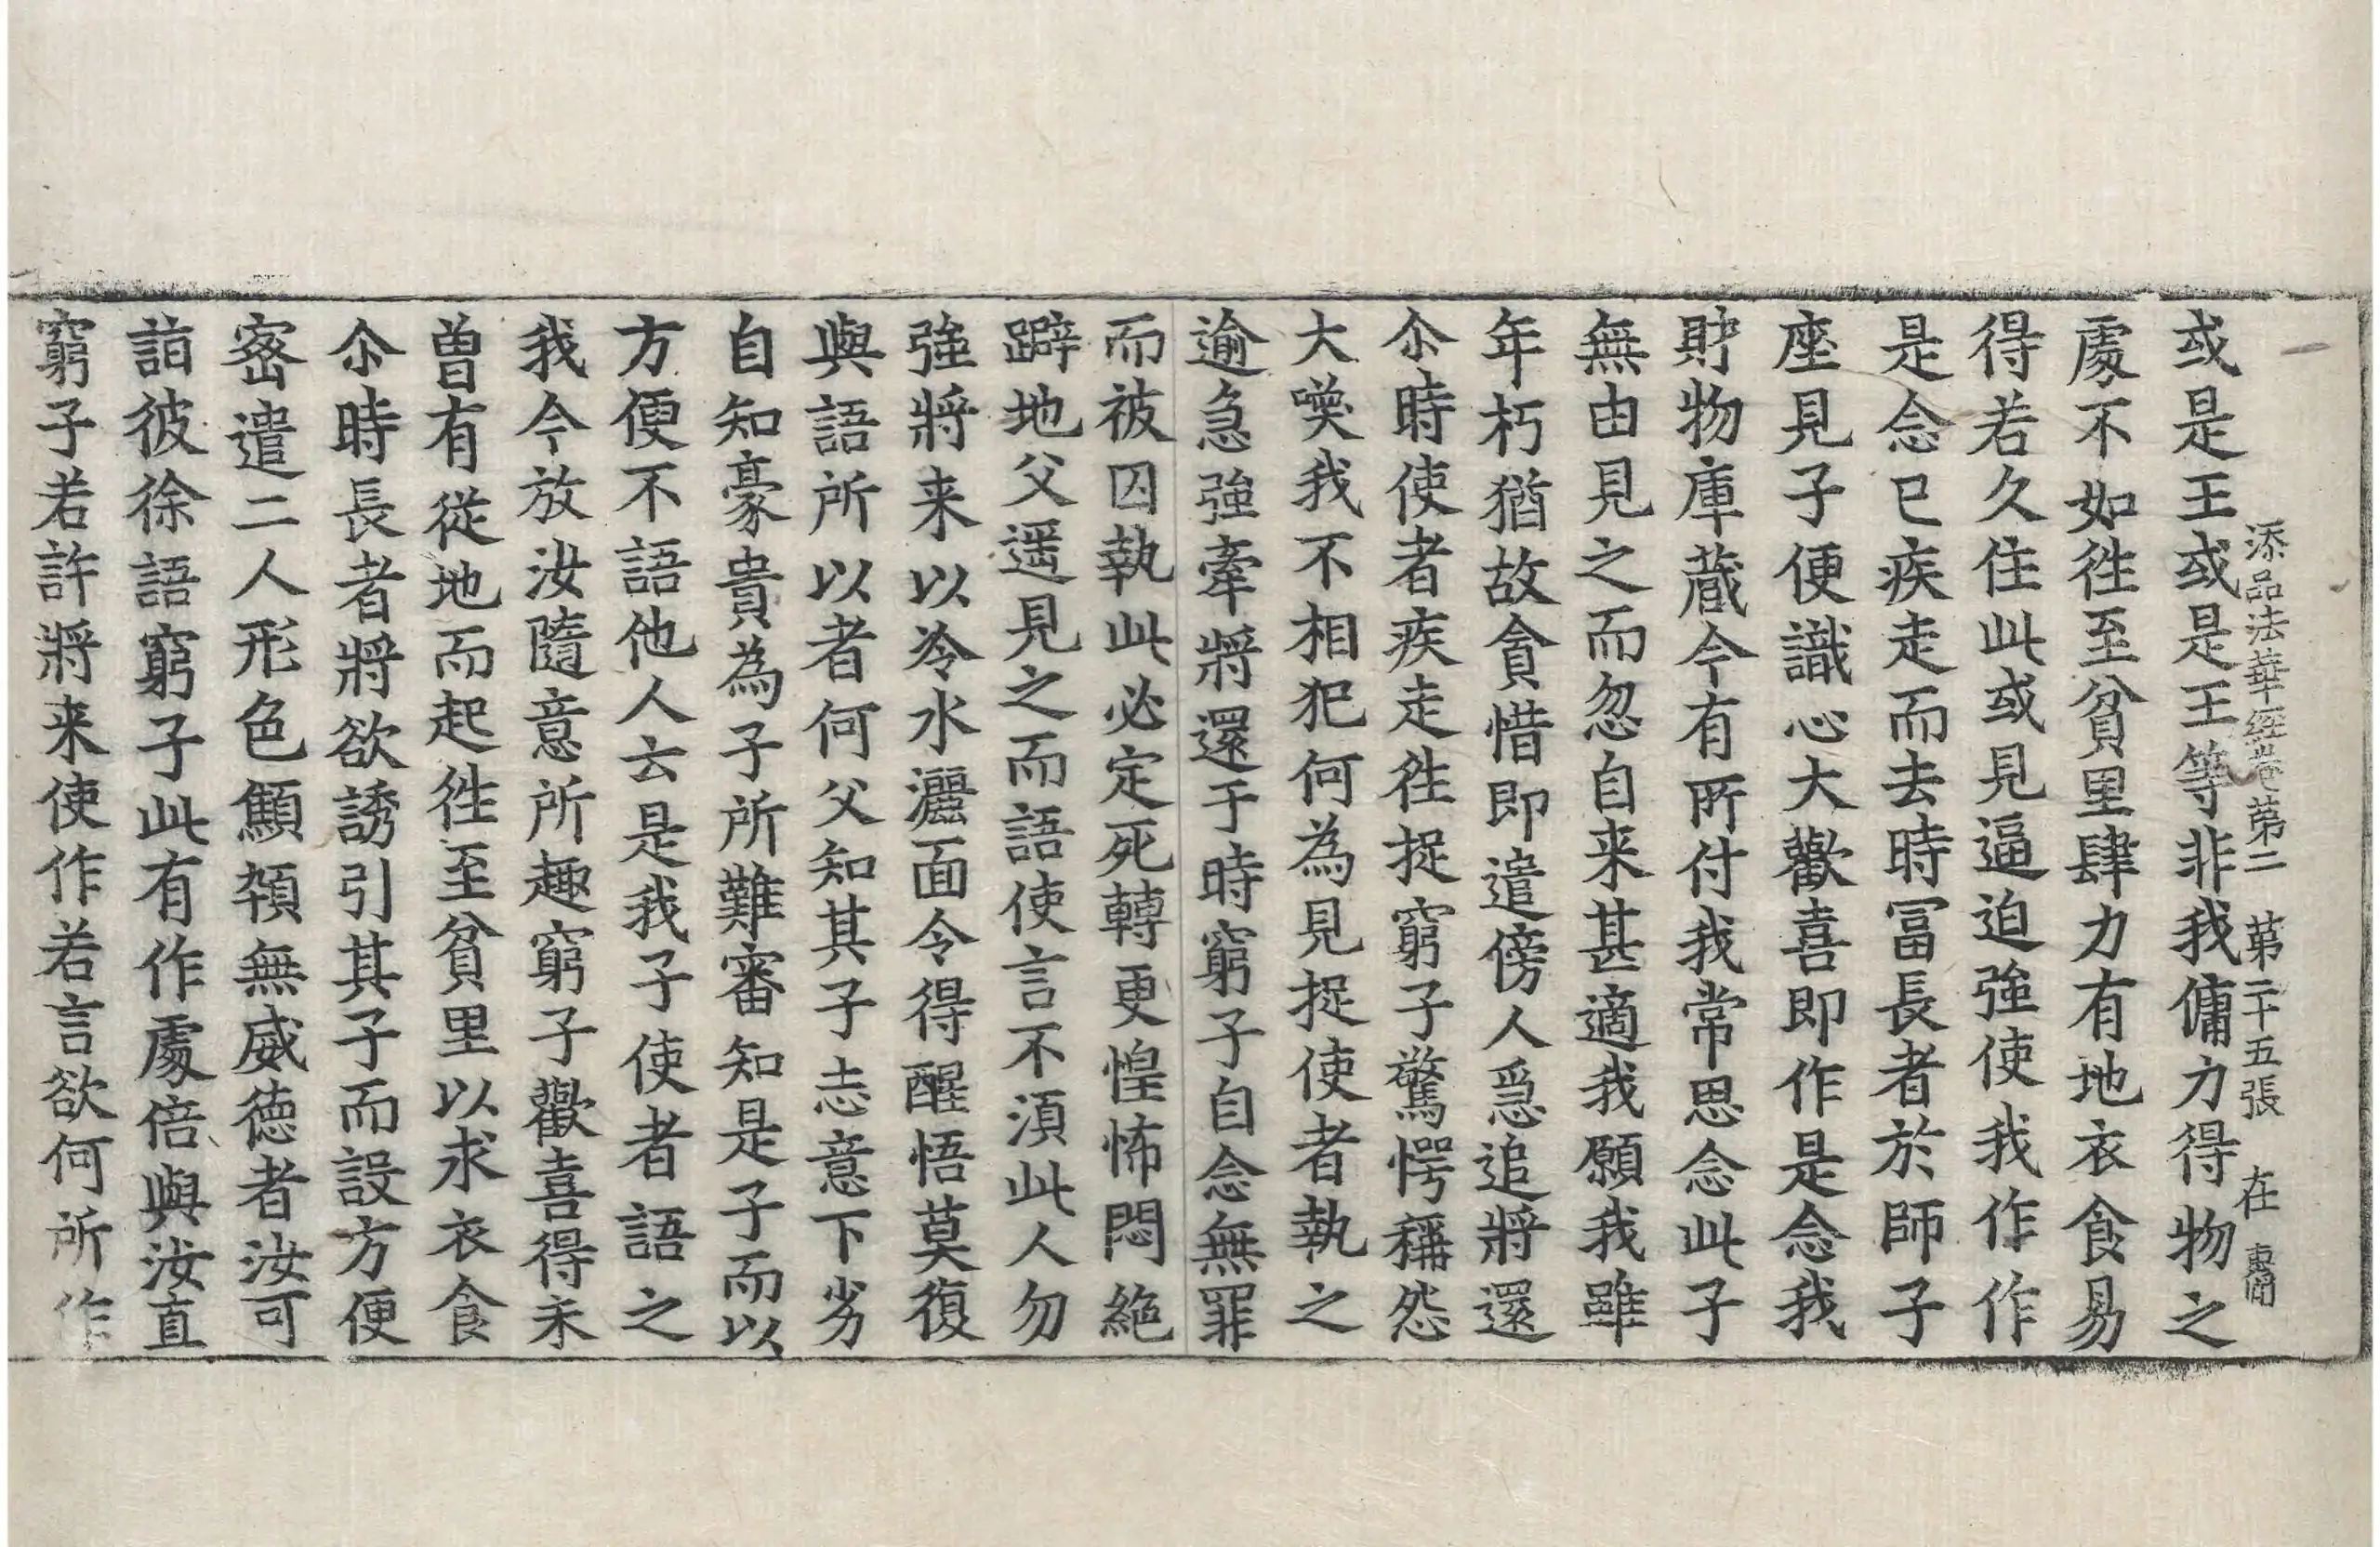 添品法華經卷第二　第二十五張　在
或是王或是王等非我傭力得物之
處不如徃至貧里肆力有地衣食易
得若久住此或見逼迫強使我作作
是念已疾走而去時冨長者於師子
座見子便識心大歡喜即作是念我
財物庫藏今有所付我常思念此子
無由見之而忽自来甚適我願我雖
年朽猶故貪惜即遣傍人爲追將還
尒時使者疾走徃捉窮子驚愕稱怨
大喚我不相犯何為見捉使者執之
逾急強牽將還于時窮子自念無罪
而被囚執此必定死轉更惶怖悶絕
躃地父遥見之而語使言不湏此人勿
強將来以冷水灑面令得醒悟莫復
與語所以者何父知其子志意下劣
自知豪貴為子所難審知是子而以
方便不語他人云是我子使者語之
我今放汝隨意所趣窮子歡喜得未
曽有從地而起徃至貧里以求衣食
尒時長者將欲誘引其子而設方便
密遣二人形色顦頓無威德者汝可
詣彼徐語窮子此有作處倍與汝直
窮子若許將来使作若言欲何所作